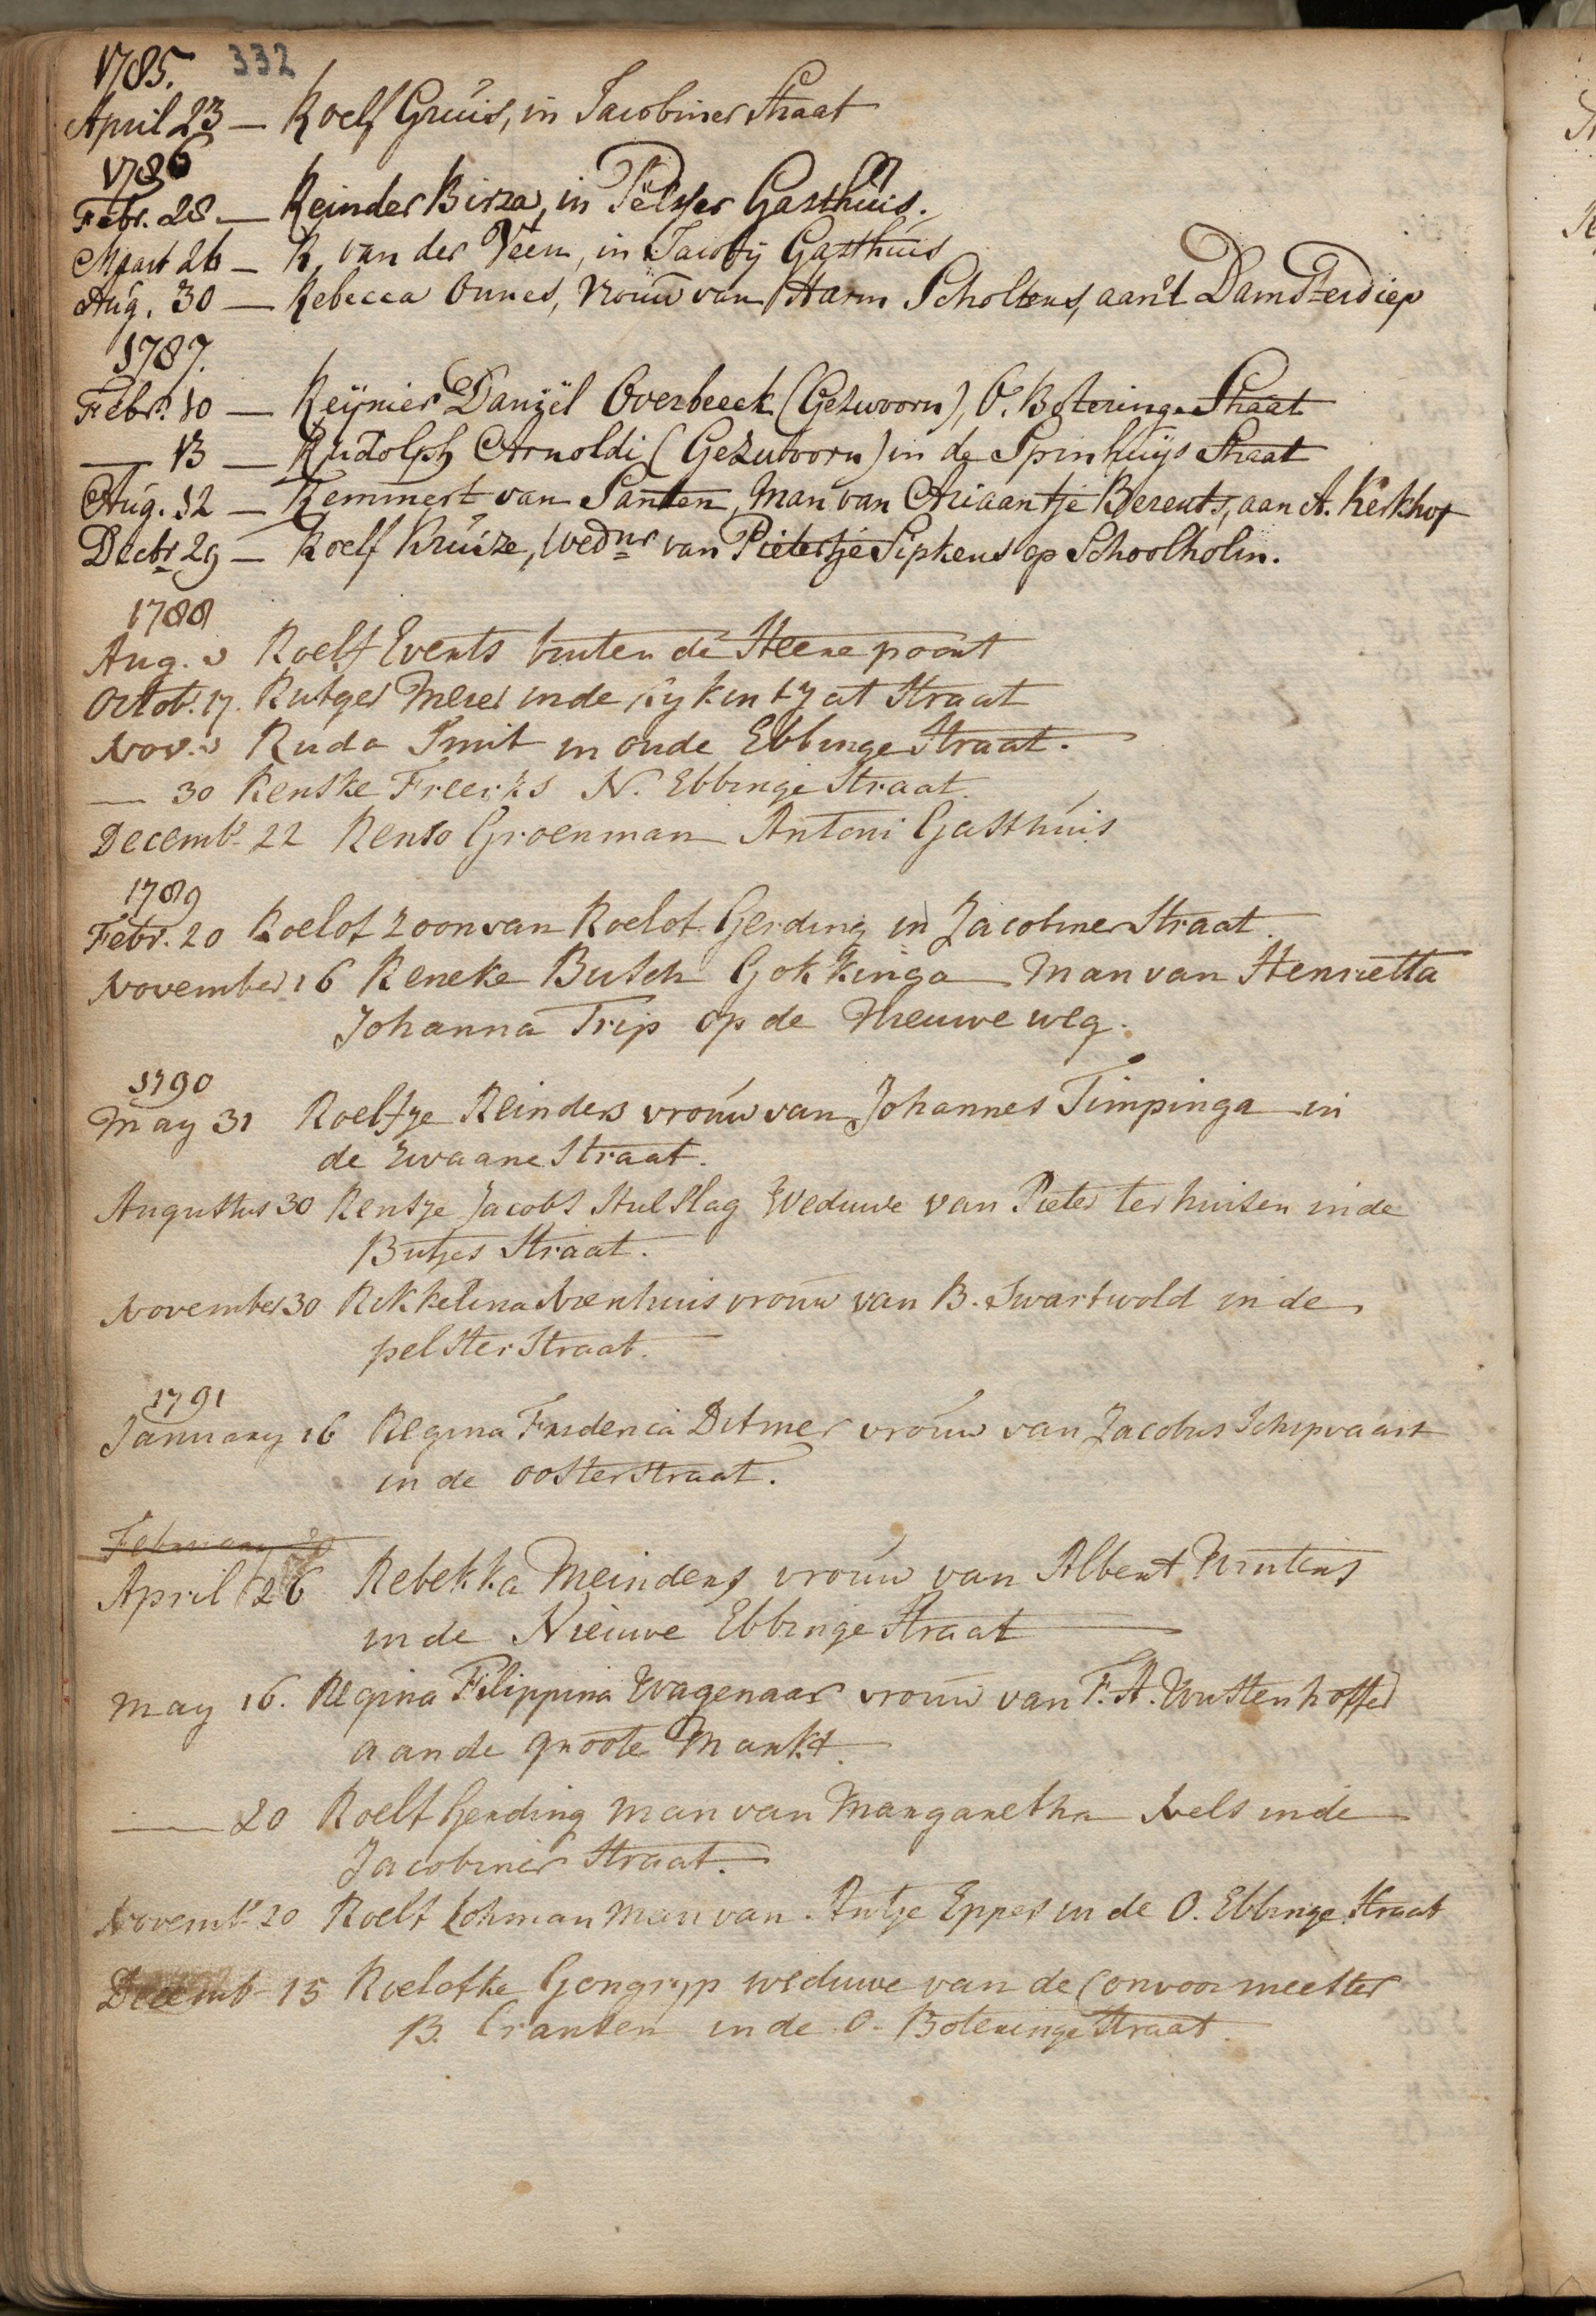 1785. 332
April 23 — Roelf Gruis, in Jacobiner Straat
1786
Febr. 28 — Reinder Birza, in Pelster Gasthuis.
Maart 26 — R. van der Veen, in Jacobij Gasthuis
Aug. 30 — Rebecca Onnes, Vrouw van Harm Scholtens, aan't Damsterdiep
1787.
Febr. 10 — Reijnier Daniël Overbeeck (Gezwoorn), O. Boteringe Straat
— 13 — Rudolph Arnoldi (Gezwoorn) in de Spinhuijs Straat
Aug. 12 — Remmert van Santen, Man van Ariaantje Berents, aan A. Kerkhof
Decbr 29 — Roelf Kruize, Wednr van Pietertje Sipkens op Schoolholm.
1788
Aug. 3 Roelf Everts buten de Steene poort
Octob. 17. Rutger Meier in de Straat
Nov. 3 Ruda Smit in oude Ebbinge Straat.
— 30 Renske Freerks N. Ebbinge Straat.
Decemb. 22 Renso Groenman Antoni Gasthuis
1789
Febr. 20 Roelof zoon van Roelof Gerding in Jacobiner Straat.
November 16 Reneke Busch Gokkinga Man van Henrietta
Johanna Trip op de Nieuwe weg.
1790
May 31 Roelfje Reinders vrouw van Johannes Timpinga in
de Zwaane Straat.
Augustus 30 Rentje Jacobs Hulslag Weduwe van Pieter ter huisen in de
Butjes Straat.
November 30 Rikkelina Nienhuis vrouw van B. Swartwold in de
pelster Straat.
1791
January 16 Regina Friderica Ditmer vrouw van Jacobus Schipvaart
in de oosterstraat.
February 20
April 26 Rebekka Meinders vrouw van Albert
in de Nieuwe Ebbinge Straat
May 16. Regina Filippina Wagenaar vrouw van F. A. Wustenhoffer
aan de groote Markt.
— 20 Roelf Gerding man van Margaretha Nels in de
Jacobiner Straat.
Novemb. 20 Roelf Lohman man van Antje Eppes in de O. Ebbinge Straat
Decemb. 15 Roelofke Gongryp weduwe van de Convooimeester
B. Cransen in de O. Boteringe Straat.